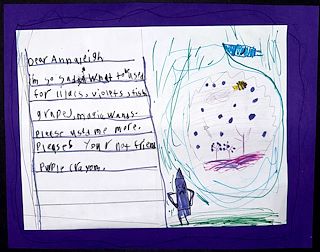 Dear Annaleigh
I'm so sad
for lilacs, violets, fish
grape, magic wands.
please use me more.
Please! Your not friend
Purple Crayon.